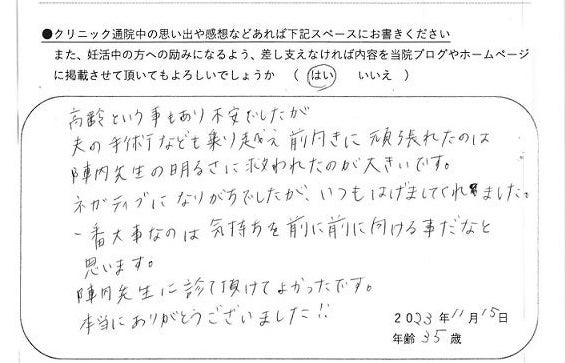 ●クリニック通院中の思い出や感想などあれば下記スペースにお書きください
また、妊活中の方への励みになるよう、差し支えなければ内容を当院ブログやホームページ
に掲載させて頂いてもよろしいでしょうか （ はい ・ いいえ ）
高齢という事もあり不安でしたが
夫の手術なども乗り越え前向きに頑張れたのは
陣内先生の明るさに救われたのが大きいです。
ネガティブになりがちでしたが、いつもはげましてくれました。
一番大事なのは気持ちを前に前に向ける事だなと
思います。
陣内先生に診て頂けてよかったです。
本当にありがとうございました!!
2023年11月15日
年齢35歳